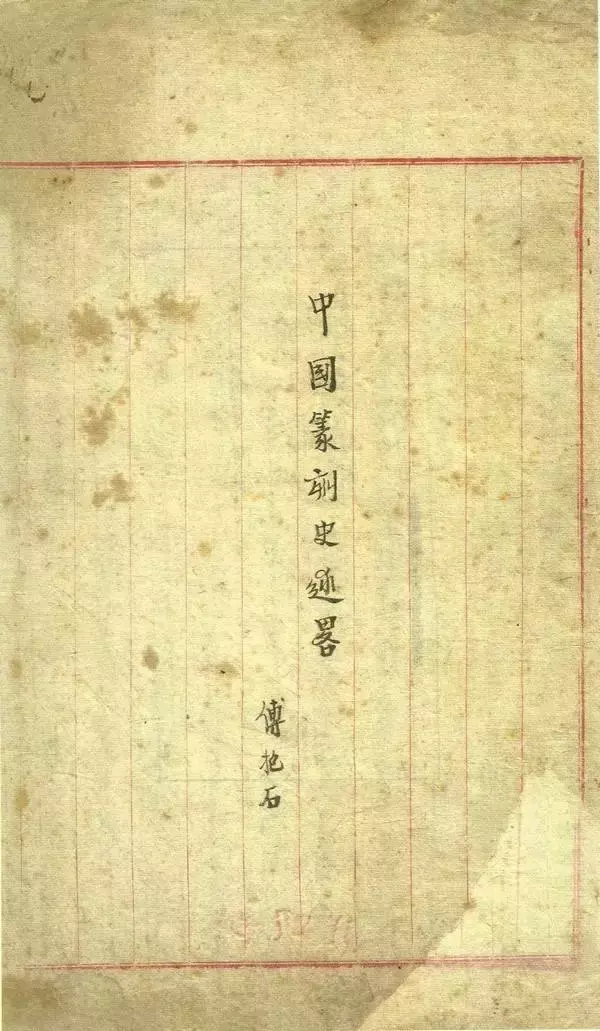 中國篆刻史述畧
傅抱石